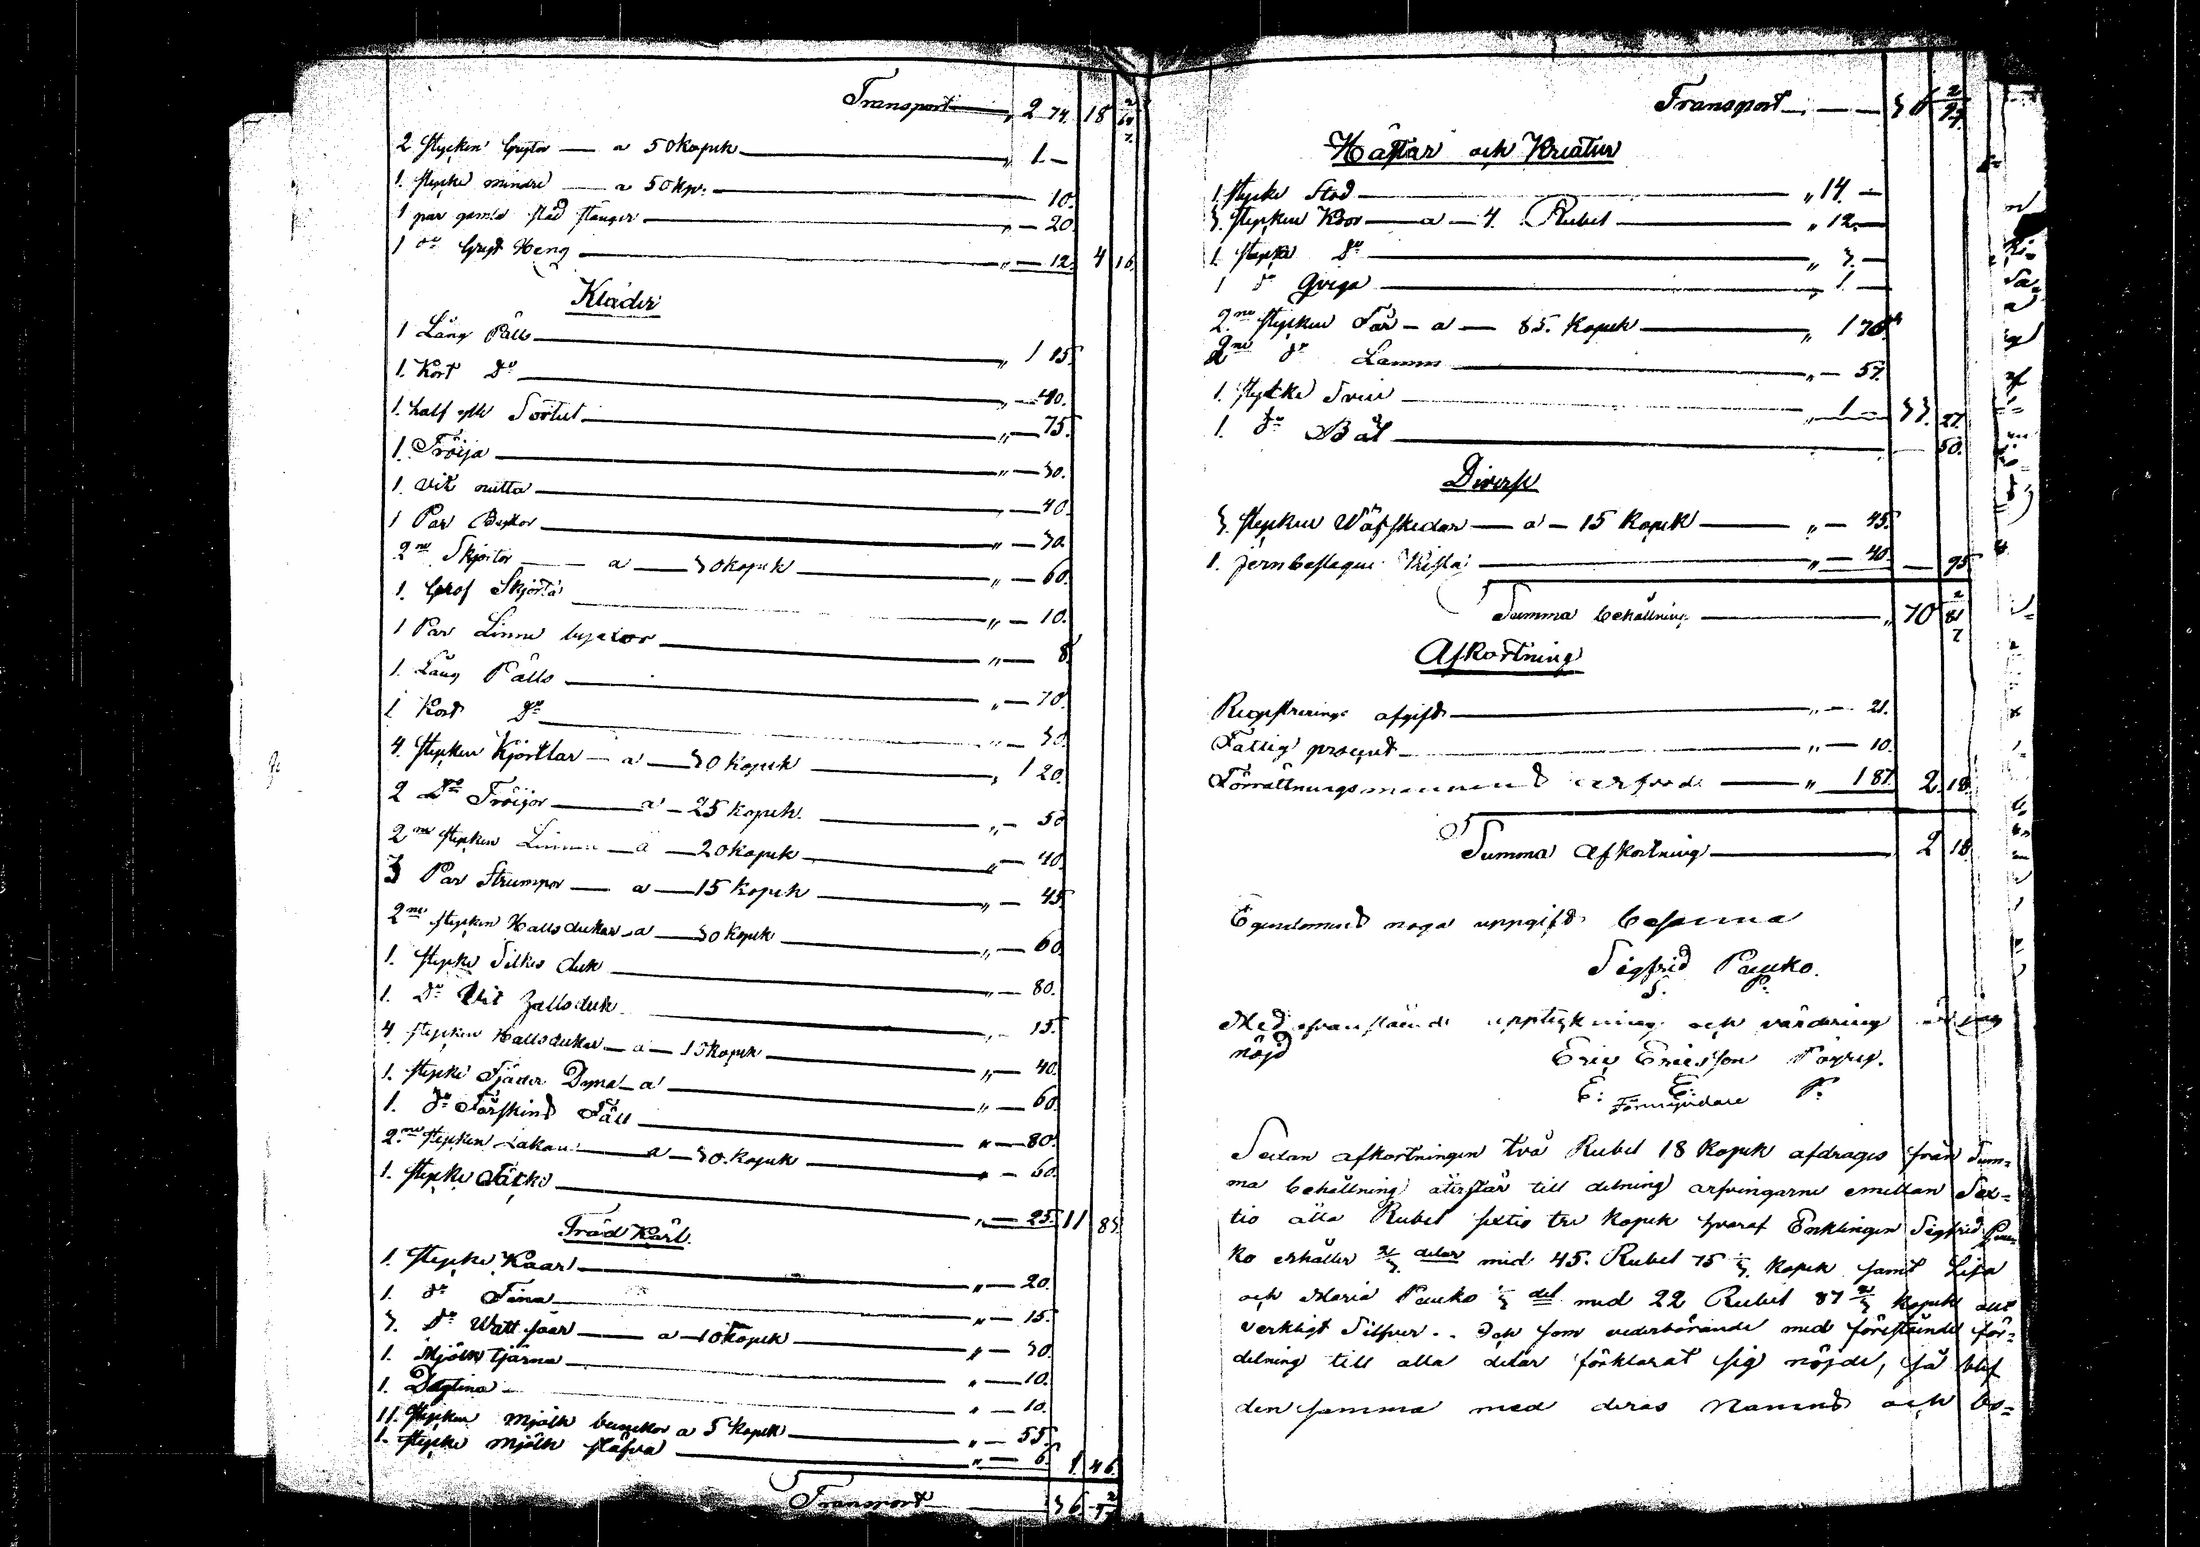 Transport — „ 2 74. 18 2/64/7
2 stycken Grytor — a 50 kopek — „ 1. —
1. stycke mindre — a 50 kp. — 10.
1 par gamla städ stänger — „ — 20.
1 do Gryt Heng — „ — 12. 4 16.
Kläder
1 Lång Päls — „ 1 15.
1. Kort Do — „ — 40.
1. half ylle Sortut — „ — 75.
1. Tröija — „ — 30.
1. Vit mitta — „ — 40.
1 Par Byxor — „ — 30.
2ne Skjortor — a — 30 kopek — „ — 60.
1. Grof Skjorta — „ — 10.
1 Par Linne byxor — „ — 8.
1. Lång Päls — „ — 70.
1 Kort Do — „ — 30.
4. stycken Kjortlar — a — 30 kopek — „ 1 20.
2 Do Tröijor — a — 25 kopek. — „ — 50
2ne stycken Linnen — a — 20 kopek — „ — 40.
3 Par Strumpor — a — 15 kopek — „ — 45.
2ne stycken Halsdukar — a — 30 kopek — „ — 60.
1. stycke Silkes duk — „ — 80.
1. Do Vit Halsduk — „ — 15.
4 stycken Halsdukar — a — 10 kopek — „ — 40.
1. stycke Fjäder Dyna — a — „ — 60.
1. do Fårskins Fäll — „ — 80.
2ne stycken Lakan — a — 30. kopek — „ — 60.
1. stycke Täcke — „ — 25. 11 83.
Träd Kärl.
1. stycke Kaar — „ — 20.
1. do Tina — „ — 15.
3. do Watt saar — a — 10 kopek — „ — 30.
1. Mjölk tjärna — „ — 10.
1. Degtina — „ — 10.
11. stycken mjölk bunckor a 5 kopek — „ — 55.
1. stycke mjölk stäfva — „ — 6. 1. 46.
Transport — 36 2/7
Transport — — 36 2/97
Hästar och Kreatur
1. stycke Stod — „ 14. —
3. stycken Kor — a — 4. Rubel — „ 12. —
1. stycke Do — „ 3. —
1 do Qviga — „ 1. —
2ne stycken Får — a — 85. kopek — „ 1 70.
2ne do Lamm — „ — 57.
1. stycke Svin — „ 1 — 33. 27.
1. do Båt — 50.
Diverse
3. stycken Wäfskedar — a — 15 kopek — „ — 45.
1. jernbeslagen Kista — „ — 40. — 95.
Summa behållning — „ 70 2/81/7
Afkortning
Registrerings afgift — „ — 21.
Fattig procent — „ — 10.
Förrättningsmannens arfvode — „ 1 87. 2. 18.
Summa Afkortning — 2 18
Egendomens noga uppgift besanna
Sigfrid Pauko.
S. P.
Med ofvanstående upptekning och värdering är jag
nöjd Eric Ericsson
E: E:
Förmyndare
Sedan afkortningen två Rubel 18 kopek afdrages från Sum=
ma behållning återstår till delning arfvingarne emellan Sex=
tio åtta Rubel sextio tre kopek hvaraf Enklingen Sigfrid Pau=
ko erhåller 2/3. delar med 45. Rubel 75 1/3. kopek samt Lisa
och Maria Pauko 1/3 del med 22 Rubel 87 2/3 kopek allt
verkligt Silfver.. Och som vederbörande med förestående för=
delning till alla delar förklarat sig nöjde, så blef
den samma med deras Namns och bo=